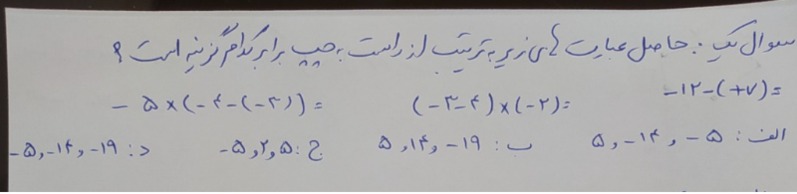 سوال یک: حاصل عبارت های زیر به ترتیب از راست به چپ برابر کدام گزینه است؟
-۱۲-(+۷)= (-۳-۴)×(-۲)= -۵×(-۴-(-۳))=
الف: ۵- و ۱۴- و ۵ ب: ۱۹- و ۱۴ و ۵ ج: ۵ و ۲ و ۵- د: ۱۹- و ۱۴- و ۵-